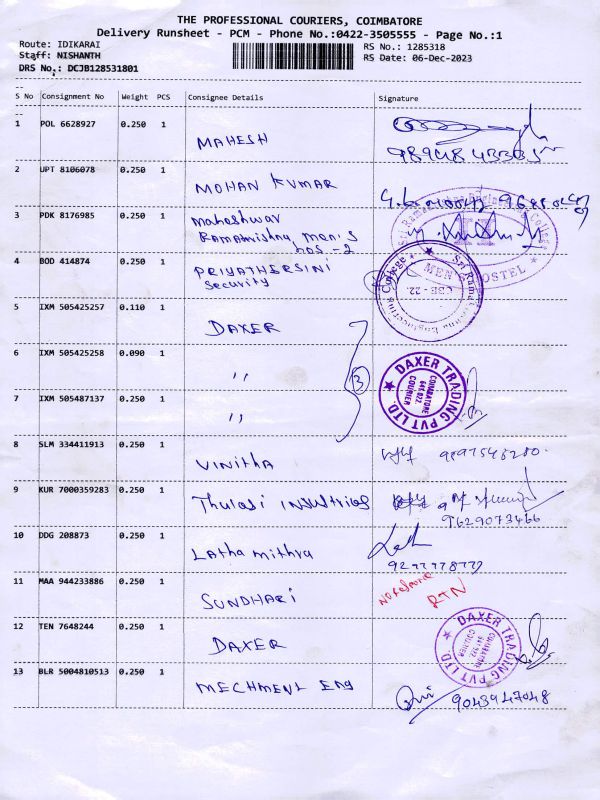 THE PROFESSIONAL COURIERS, COIMBATORE
Delivery Runsheet - PCM - Phone No.:0422-3505555 - Page No.:1
Route: IDIKARAI
RS No.: 1285318
Staff: NISHANTH
RS Date: 06-Dec-2023
DRS No.: DCJB128531801
S No Consignment No Weight PCS Consignee Details Signature
1 POL 6628927 0.250 1 MAHESH
2 UPT 8106078 0.250 1 MOHAN KUMAR
3 PDK 8176985 0.250 1 Maheshwar
Ramakrishna Men's
hos-2
4 BOD 414874 0.250 1 PRIYATHERSINI
Security
Sri Ramakrishna Engineering College
MEN'S HOSTEL
Sri Ramakrishna Engineering College
CBE - 22.
5 IXM 505425257 0.110 1 DAXER
6 IXM 505425258 0.090 1 ,,
3
7 IXM 505487137 0.250 1 ,,
DAXER TRADING PVT LTD.
COIMBATORE
641 022.
COURIER
8 SLM 334411913 0.250 1 VINITHA
9 KUR 7000359283 0.250 1 Thulasi INDUSTRIES
9629073466
10 DDG 208873 0.250 1 Latha mithra
11 MAA 944233886 0.250 1 SUNDHARI
RTN
12 TEN 7648244 0.250 1 DAXER
DAXER TRADING PVT LTD.
COIMBATORE
641 022.
COURIER
13 BLR 5004810513 0.250 1 MECHMENL Eng
9043947048